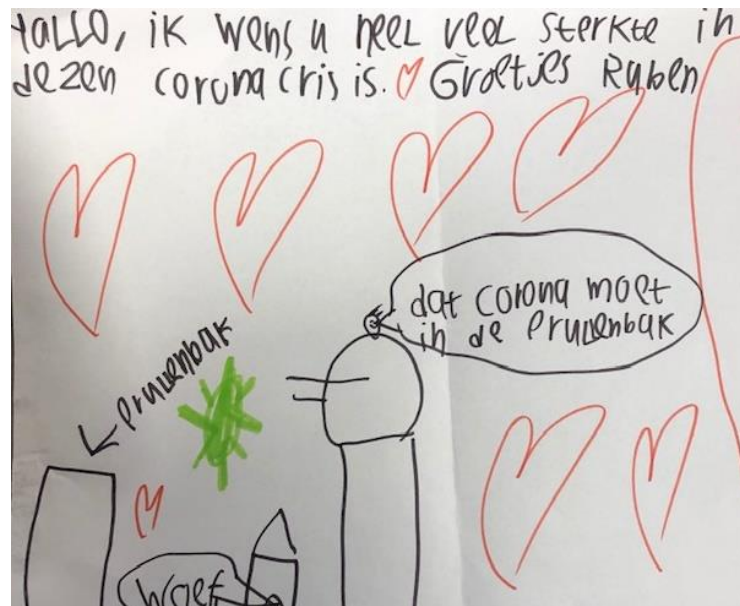 Hallo, ik wens u heel veel sterkte in
dezen corona crisis. Groetjes Ruben
dat corona moet
in de prullenbak
prullenbak
woef